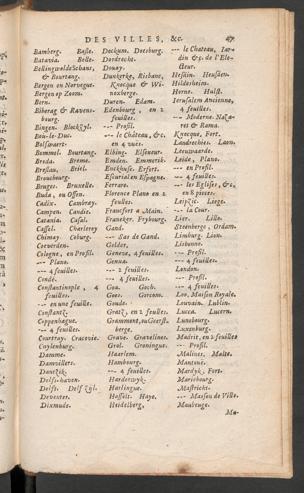 DES VILLES, &c. 47
Bamberg. Basle.
Batavia. Belle.
Bellingwalde Schans,
& Bourtang.
Bergen en Norvegue.
Bergen op Zoom.
Bern.
Biberag & Ravens-
bourg.
Bingen. Blockzyl.
Bou-le-Duc.
Bolswaert.
Bommel. Bourtang.
Breda. Breme.
Breslau. Briel.
Brouchourg.
Bruges. Bruxelle.
Buda, ou Offen.
Cadix. Cambray.
Campen. Candie.
Catania. Casal.
Cassel. Charleroy
Chimay. Coburg.
Coeverden.
Cologne, en Profil.
--- Plano.
--- 4 feuilles.
Condé.
Constantinople, 4
feuilles.
--- en une feuille.
Constantz.
Coppenhague.
--- 4 feuilles.
Courtray. Cracovie.
Cuylenburg.
Damme.
Damvillers.
Dantzik.
Delfs-haven.
Delft. Delfzyl.
Deventer.
Dixmude.
Dockum. Doesburg.
Dordrecht.
Douay.
Dunkerke, Risbans,
Knocque & Wi-
noxberge.
Duren. Edam.
Edenbourg, en 2
feuilles.
--- Profil.
--- le Château, &c.
en 4 vües.
Elbing. Elseneur.
Emden. Emmerik.
Enckhuse. Erfurt.
Escurial en Espagne.
Ferrare.
Florence Plano en 2
feuilles.
Francfort a Main.
Franeker. Frybourg.
Gand.
--- Sas de Gand.
Gelder.
Genève, 4 feuilles.
Genua.
--- 2 feuilles.
--- 4 feuilles.
Goa. Goch.
Goes. Gorcom.
Goude.
Gratz, en 2 feuilles.
Grammont, ou Geerts-
berge.
Grave. Gravelines.
Grol. Groningue.
Haarlem.
Hambourg.
--- 4 feuilles.
Harderwyk.
Harlingue.
Hasselt. Haye.
Heidelberg.
--- le Chateau, Jar-
din &c. de l'Ele-
cteur.
Hesdin. Heusden.
Hildesheim.
Horne. Hulst.
Jerusalem Ancienne,
4 feuilles.
--- Moderne. Naza-
res & Rama.
Knocque, Fort.
Landrechies. Laon.
Leeuwaerde.
Leide, Plano.
--- en Profil.
--- 4 feuilles.
--- les Eglises, &c.
en 8 pieces.
Leipzic. Liege.
--- la Cour.
Lier. Lille.
Steenberge, Ordam.
Limburg. Lion.
Lisbonne.
--- Profil.
--- 4 feuilles.
London.
--- Profil.
--- 4 feuilles.
Loo, Maison Royale.
Louvain. Lublin.
Lucca. Lucern.
Luneburg.
Luxenburg.
Madrit, en 2 feuilles
--- Profil.
Malines. Malte.
Mantoüe.
Mardyk, Fort.
Marienbourg.
Mastricht.
--- Maison de Ville.
Maubeuge.
Me-